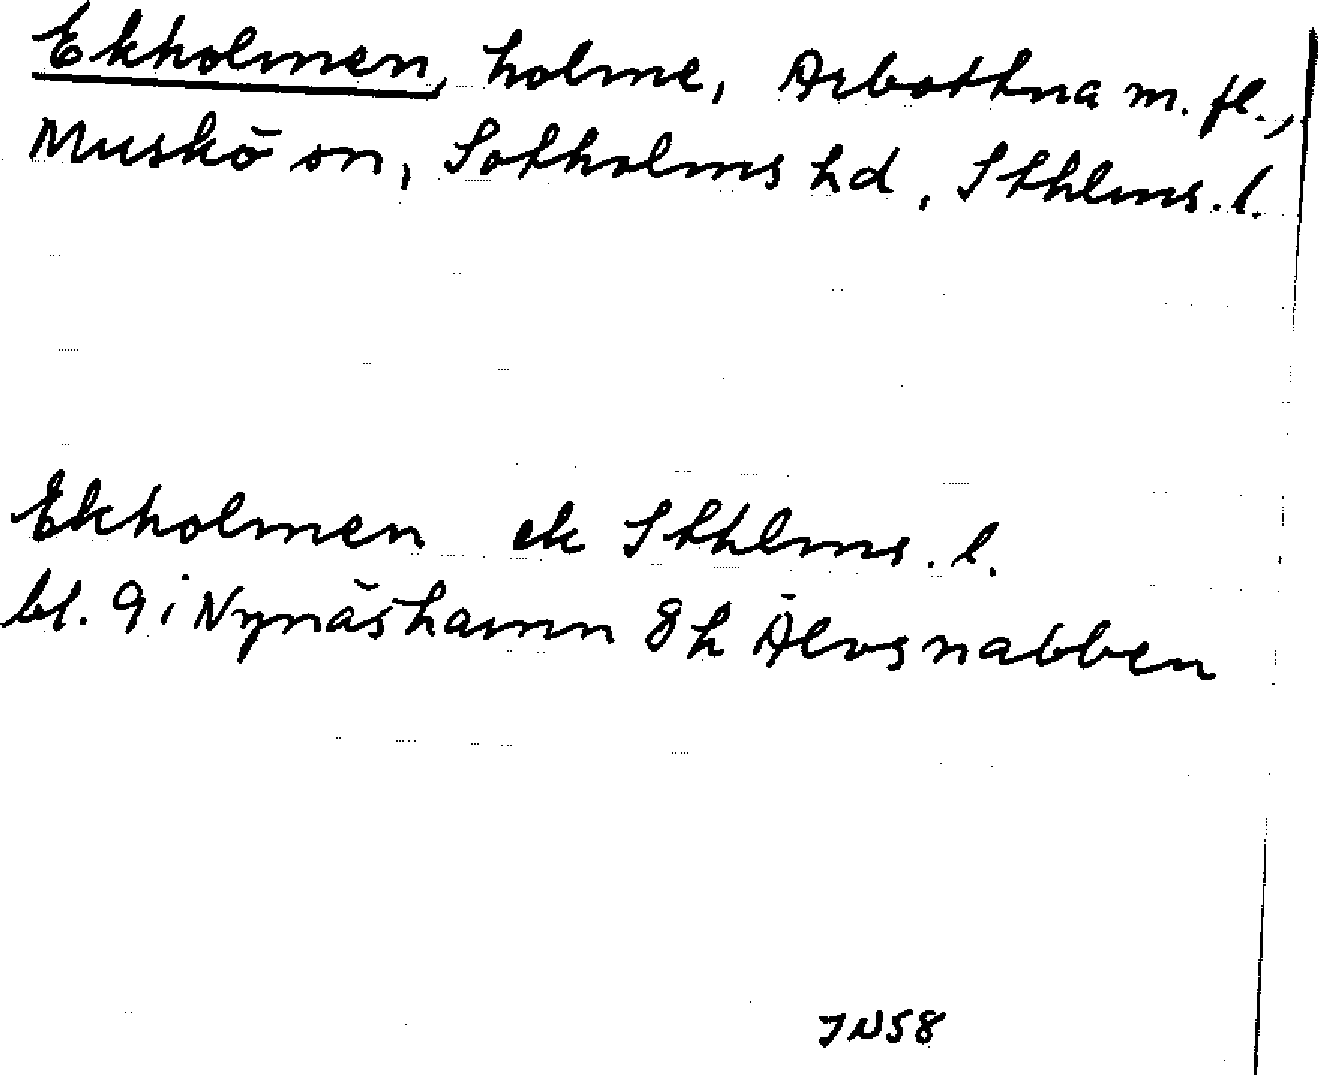 Ekholmen, holme, Arbottna m. fl.,
Muskö sn, Sotholms hd, Sthlms. l.
Ekholmen ek Sthlms. l.
bl. 9 i Nynäshamn 8h Älvsnabben
JN58